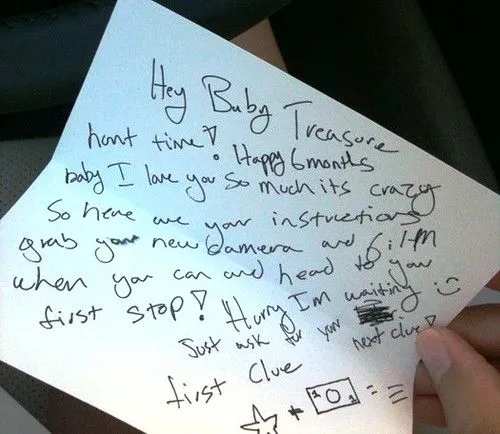 Hey Baby Treasure
hont time!
Happy 6 months
baby I love you so much its crazy
So here are your instructions
grab your new Camera and film
when you can and head to you
first stop! Hurry I'm waiting :)
Just ask for your next clue!
first clue